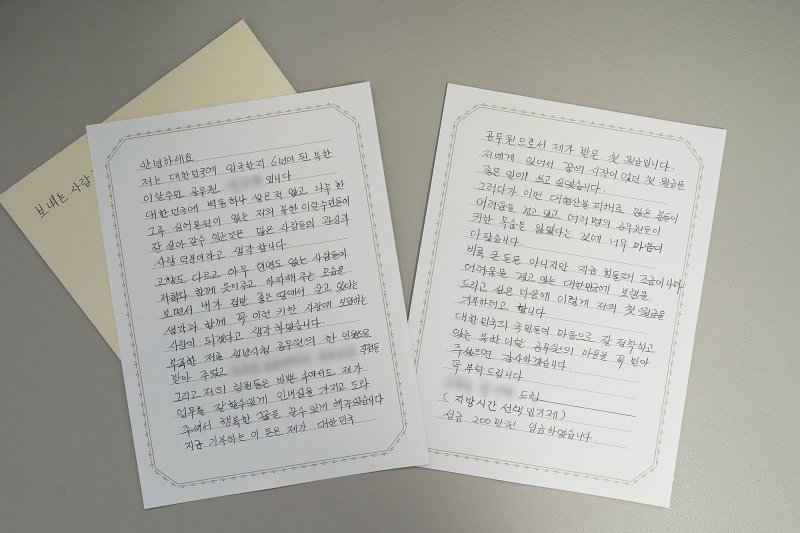 보내는 사람
안녕하세요
저는 대한민국에 입국한지 6년이 된 북한
이탈주민 공무원 입니다
대한민국에 벽돌하나 쌓은적 없고 나무 한
그루 심어본적이 없는 저와 북한이탈주민들이
잘 살아 갈수 있는것은 많은 사람들의 관심과
사랑 덕분이라고 생각 합니다
고향도 다르고 아무 연연도 없는 사람들이
저희와 함께 웃어주고 아파해 주는 모습을
보면서 내가 정말 좋은 땅에서 살고 있다는
생각과 함께 꼭 이런 귀한 사랑에 보답하는
사람이 되겠다고 생각 하였습니다.
부족한 저를 성남시청 공무원의 한 인원으로
받아 주었고 직원들
그리고 저의 팀원들은 바쁜 속에서도 제가
업무를 잘 할수 있게 인내심을 가지고 도와
주셔서 행복한 꿈을 갈수 있게 해주었습니다
지금 기부하는 이 돈은 제가 대한민국
공무원으로서 제가 받은 첫 월급입니다.
저에게 있어서 꿈의 시작이 었던 첫 월급을
좋은 일에 쓰고 싶었습니다.
그러다가 이번 대형산불 피해로 많은 분들이
어려움을 겪고 있고 여러명의 공무원들이
귀한 목숨을 잃었다는 것에 너무 마음이
아팠습니다.
비록 큰 돈은 아니지만 지금 힘들때 조금이나마
어려움을 겪고 있는 대한민국에 보탬을
드리고 싶은 마음에 이렇게 저의 첫 월급을
기부하려고 합니다
대한민국의 국민들의 마음으로 잘 정착하고
있는 북한이탈 공무원의 마음을 꼭 받아
주셨으면 감사하겠습니다.
꼭 부탁드립니다
드림
(지방시간선택임기제)
성금 200만원 입금하였습니다.